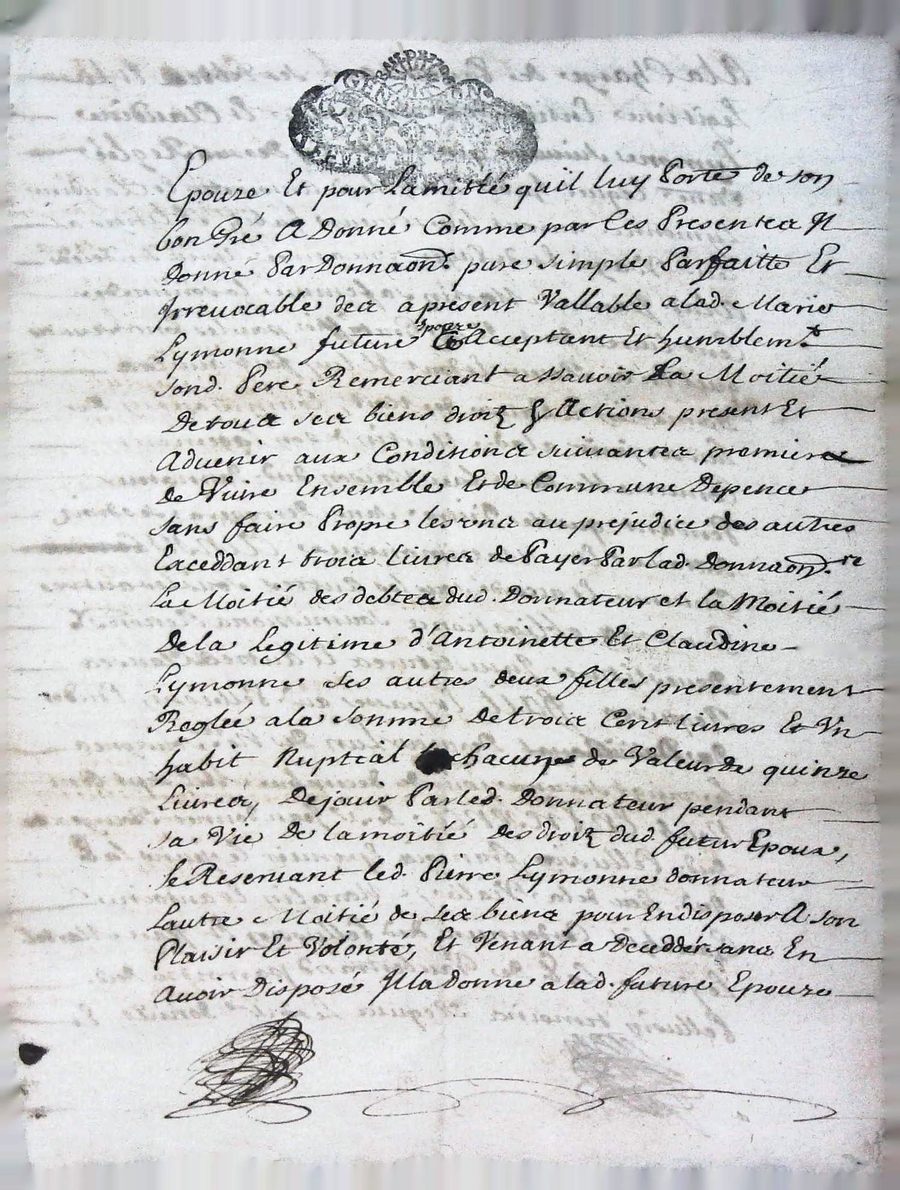 GEN
Epouze Et pour Lamitié quil luy Porte de son
bon Gré A Donné Comme par Ces Presentes Jl
Donné Par Donnaon.e pure simple Parfaitte Et
Jrreuocable des apresent Vallable alad. Marie
Lymonne future Epouze Acceptant Et humblem.t
sond. Pere Remerciant assauoir La Moitié
De tous ses biens droitz & Actions present Et
Aduenir aux Conditions suiuantes premiere
de Viure Ensemble Et de Commune Depence
sans faire Propre les uns au prejudice des autres
Exceddant trois liures de Payer Par lad. Donnaon.re
La Moitié des debtes dud. Donnateur et la Moitié
De la Legitime d'Antoinette Et Claudine
Lymonne ses autres deux filles presentement
Reglée a la somme De trois Cent liures Et Vn
habit Nuptial chacune de Valeur de quinze
Liures, De jouir Par led. Donnateur pendant
sa Vie De la moitié des droitz dud. futur Epoux,
se Reseruant led. Pierre Lymonne donnateur
Lautre Moitié de ses biens pour En disposer A son
Plaisir Et Volonté, Et Venant a Decedder sans En
Auoir Disposé Jl la Donne a lad. future Epouze